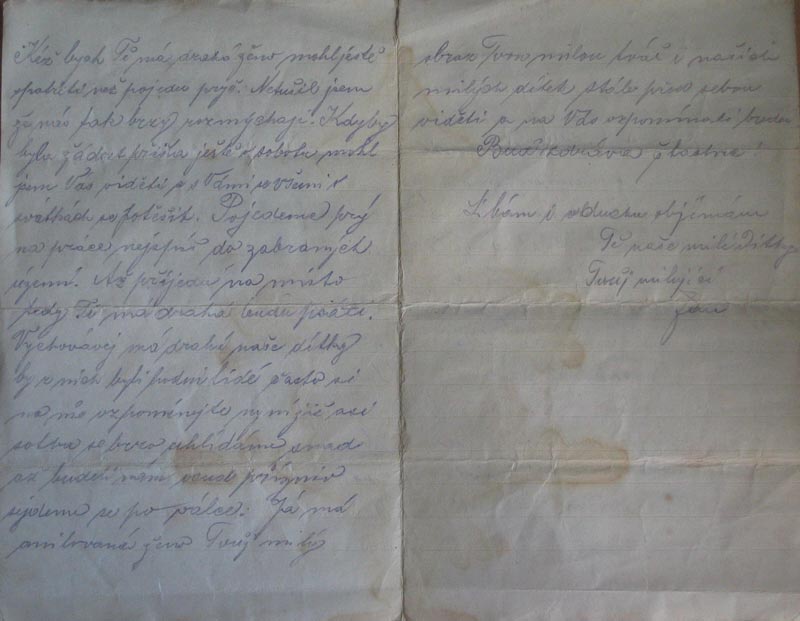 Kéž bych Tě má drahá ženo mohl ještě
spatřiti než pojedu pryč. Netušil jsem
že nás tak brzy rozmýchají. Kdyby
byla žádost přišla ještě v sobotu mohl
jsem Vás viděti a s Vámi se všemi v
svátkách se potěšit. Pojedeme prý
na práce nejspíš do zabraných
území. Až přijedu na místo
tedy Ti má drahá budu psáti.
Vychovávej má drahá naše dítky
by z nich byli hodní lidé často si
na mě vzpomínejte nyní již asi
sotva se brzo uhlídáme snad
až bude nám osud přízniv
sejdeme se po válce. Já má
milovaná ženo Tvůj milý
obraz Tvou milou tvář i našich
milých dítek stále před sebou
viděti a na Vás vzpomínati budu
Buď zdráva šťastna!
Líbám i v duchu objímám
Tě naše milé dítky
Tvůj milující
Jan